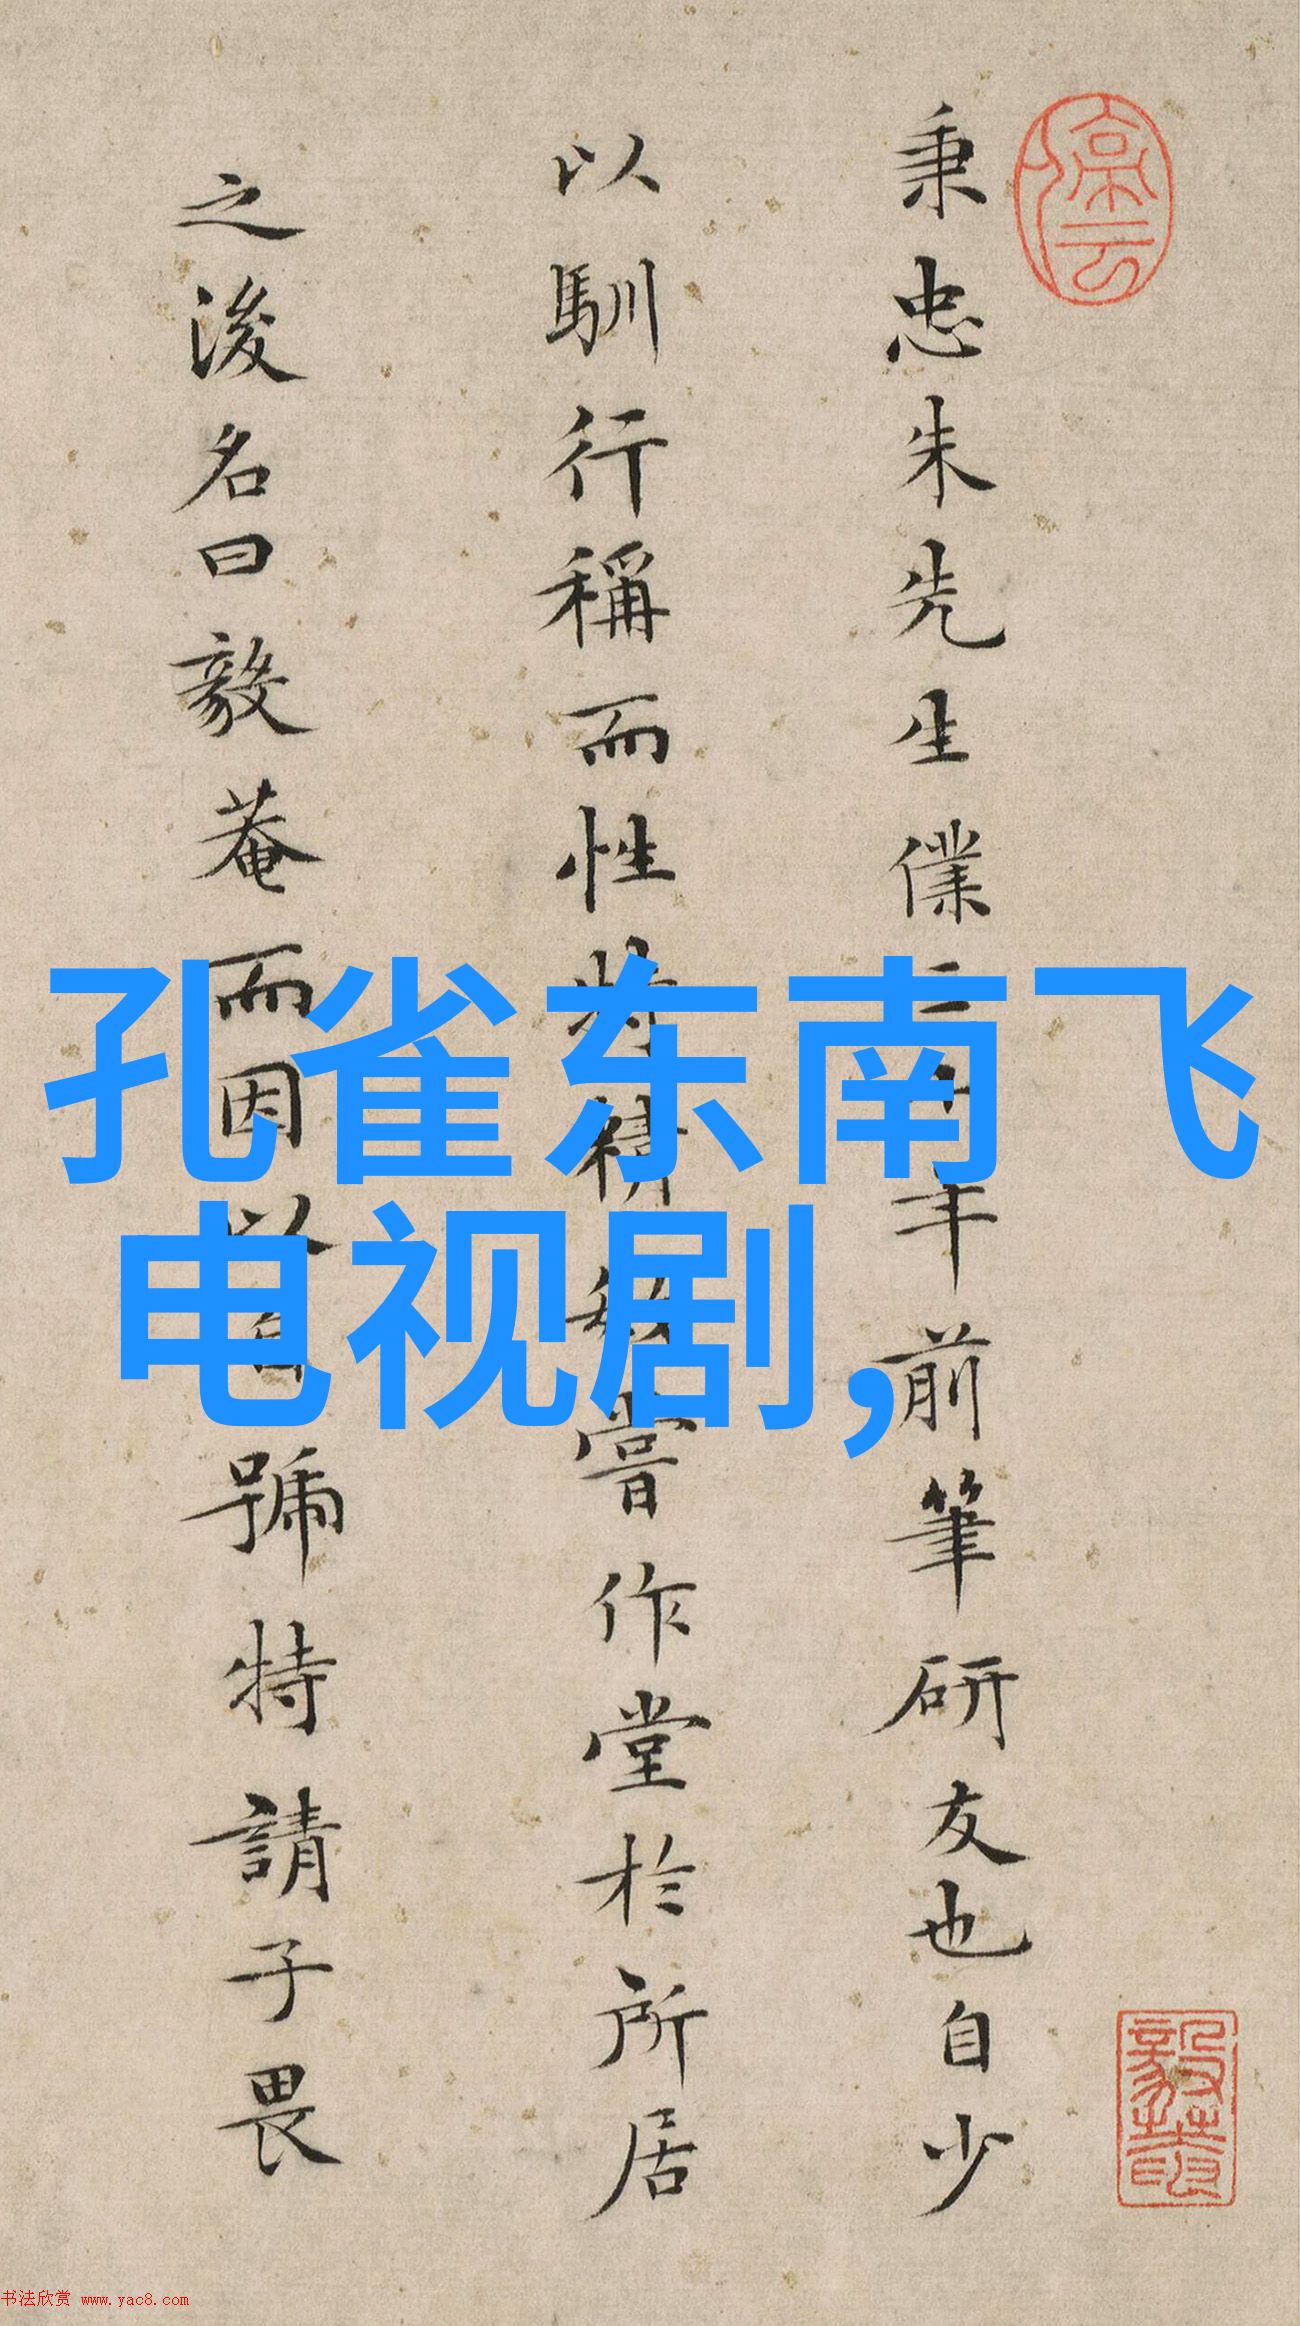 秉忠朱先生僕二十年前筆研友也自少
以馴行稱而性特精敏嘗作堂於所居
之後名曰毅菴而因以自號特請子畏
孔雀东南飞
电视剧,
书法欣赏 www.yac8.com